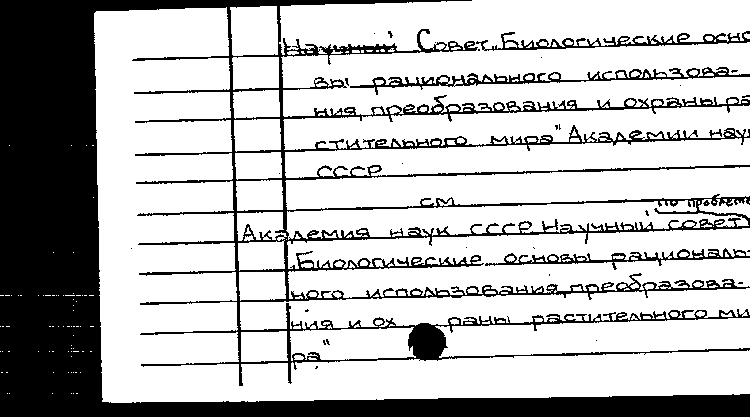 Научный Совет „Биологические осно
вы рационального использова-
ния, преобразования и охраны ра
стительного мира" Академии наук
СССР
см
по проблеме
Академия наук СССР. Научный совет
„Биологические основы рациональ-
ного использования, преобразова-
ния и ох раны растительного ми
ра"